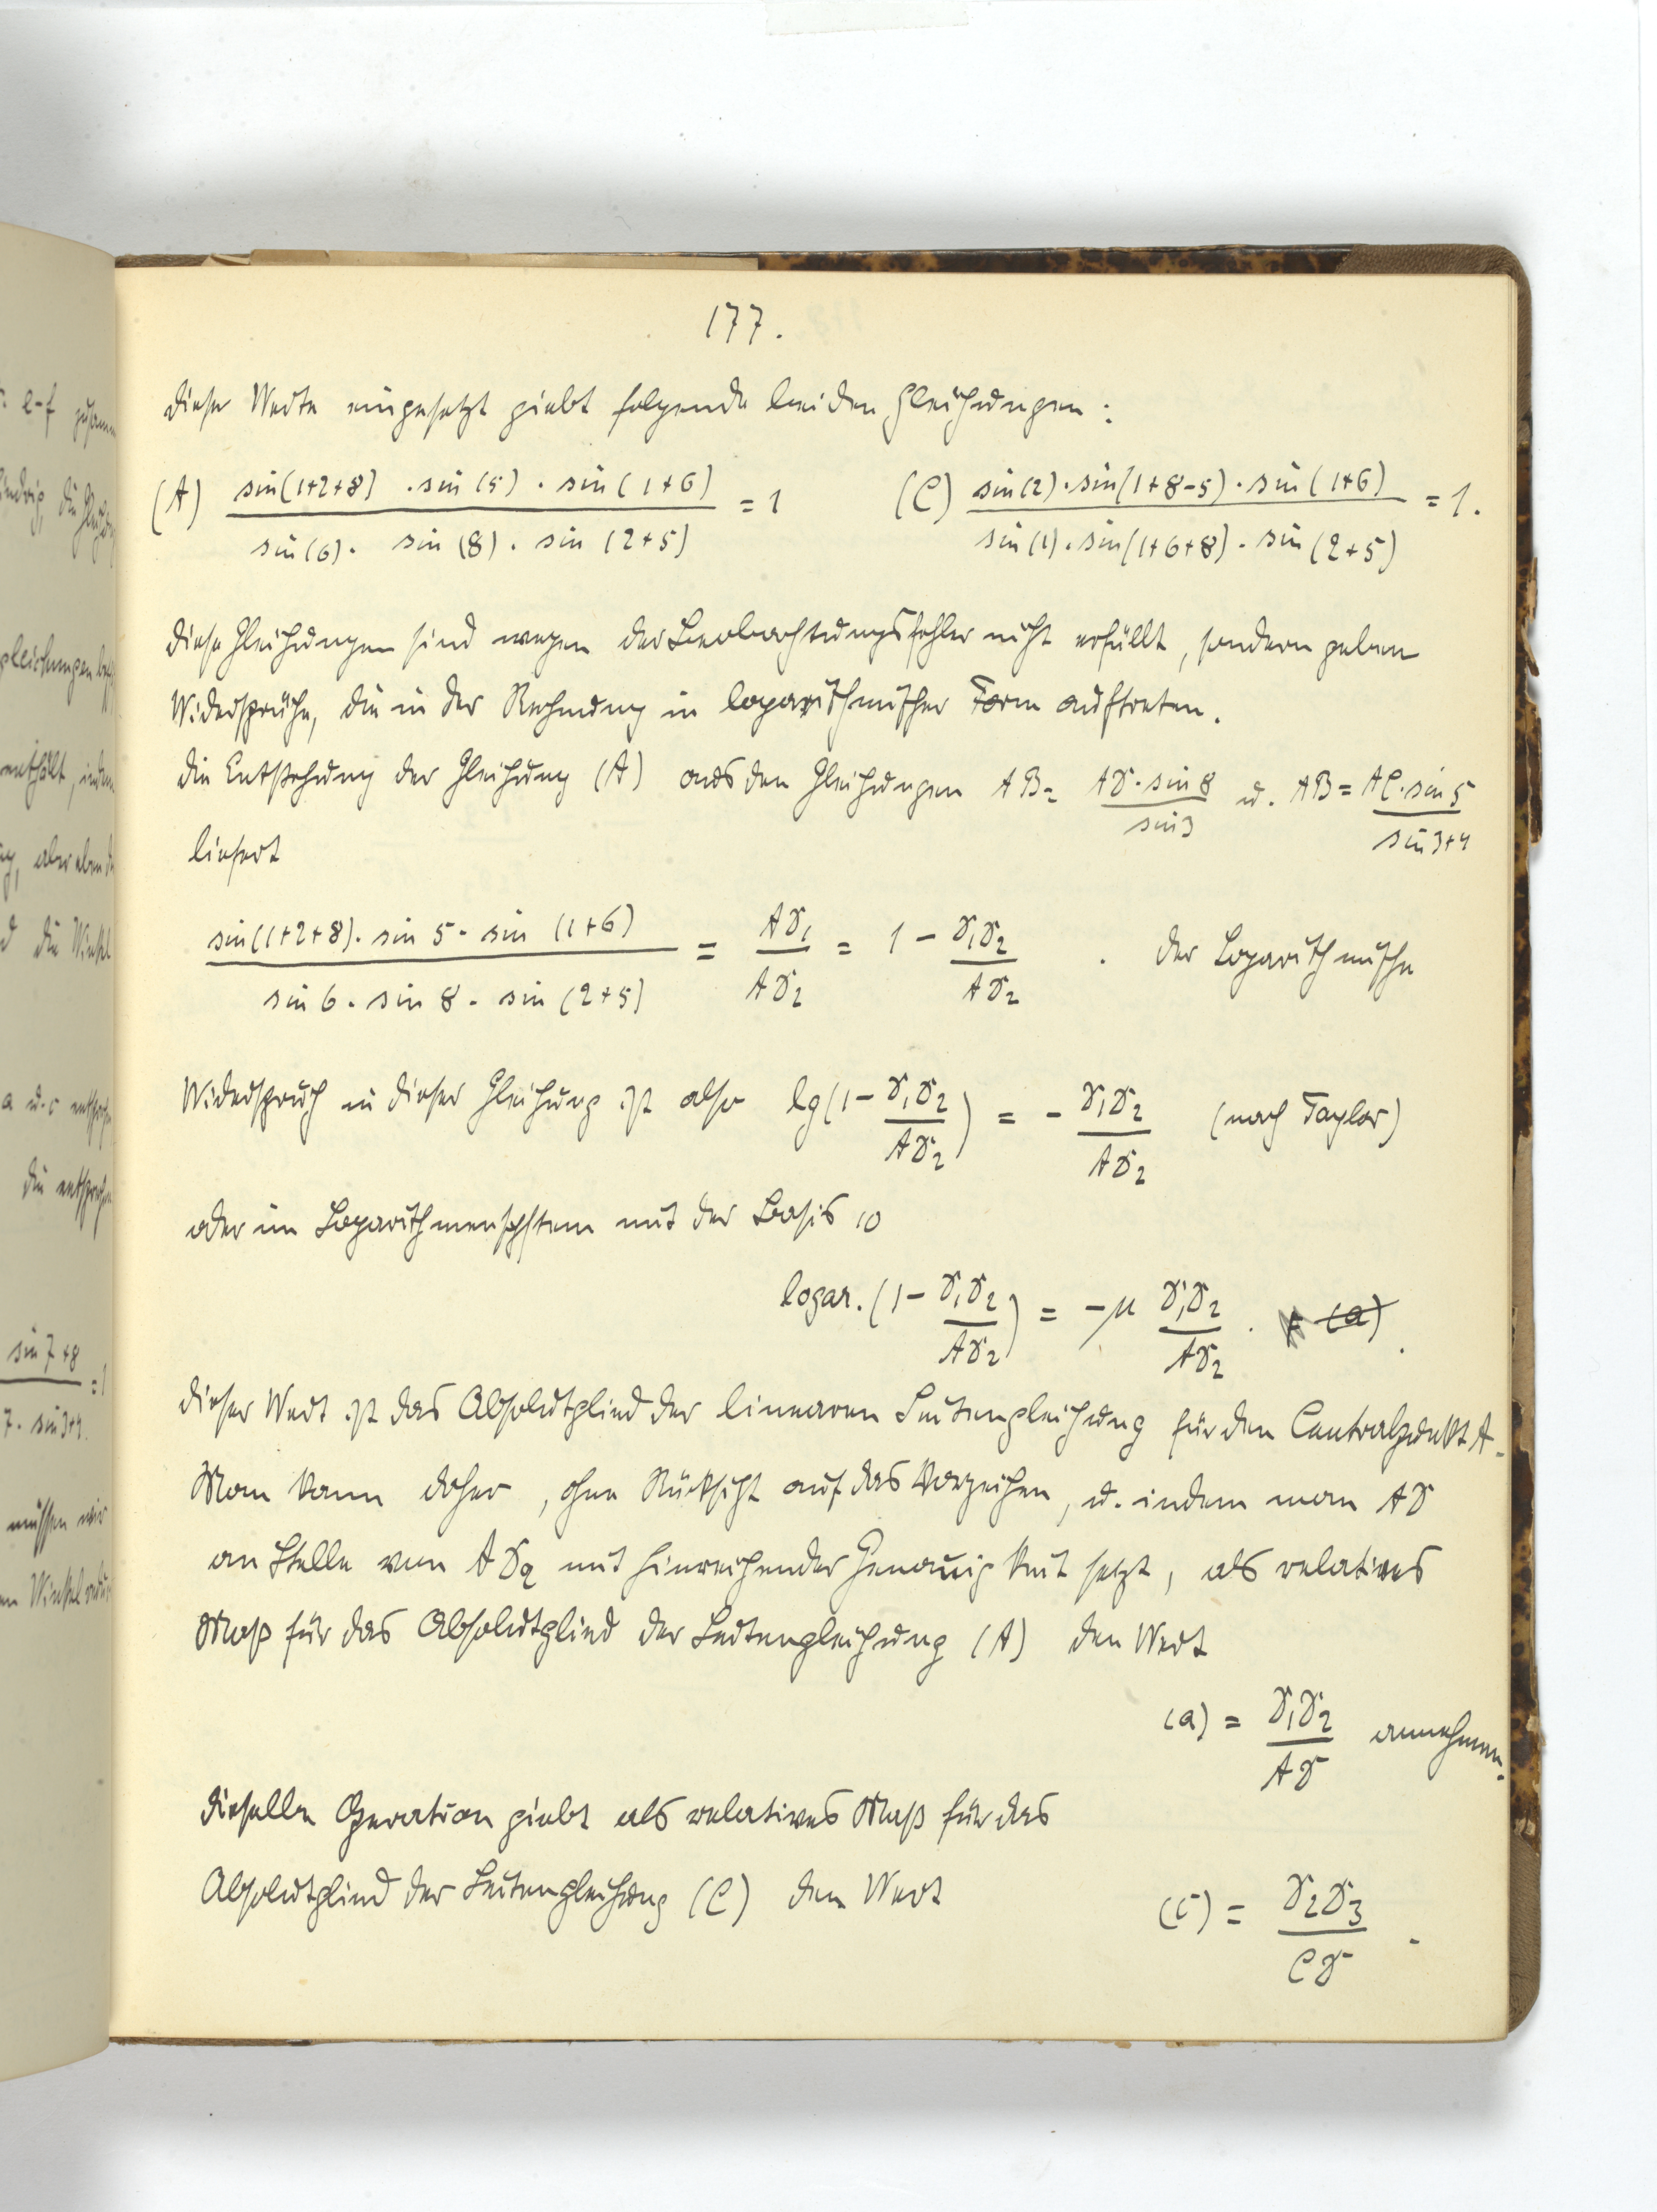 177.
Dieser Werte eingesetzt giebt folgende beiden Gleichungen:
(A) sin(1+2+8) · sin(5) · sin(1+6) / sin(6) · sin(8) · sin(2+5) = 1   (C) sin(2) · sin(1+8-5) · sin(1+6) / sin(1) · sin(1+6+8) · sin(2+5) = 1.
Diese Gleichungen sind wegen der Beobachtungsfehler nicht erfüllt, sondern geben
Widersprüche, die in der Rechnung in logarithmischer Form auftreten.
Die Entstehung der Gleichung (A) aus den Gleichungen AB = AD · sin 8 / sin 3 u. AB = AC · sin 5 / sin 3+4
liefert
sin(1+2+8) · sin 5 · sin (1+6) / sin 6 · sin 8 · sin (2+5) = AD₁ / AD₂ = 1 - D₁D₂ / AD₂ . Der Logarithmische
Widerspruch in dieser Gleichung ist also lg(1 - D₁D₂ / AD₂) = - D₁D₂ / AD₂ (nach Taylor)
oder im Logarithmensystem mit der Basis 10
logar. (1 - D₁D₂ / AD₂) = -μ D₁D₂ / AD₂ . (a).
Dieser Wert ist das Absolutglied der linearen Seitengleichung für den Centralpunkt A.
Man kann daher, ohne Rücksicht auf das Vorzeichen, u. indem man AD
an Stelle von AD₂ mit hinreichender Genauigkeit setzt, als relatives
Maß für das Absolutglied der Seitengleichung (A) den Wert
(a) = D₁D₂ / AD annehmen.
Dieselbe Operation giebt als relatives Maß für das
Absolutglied der Seitengleichung (C) den Wert
(c) = D₂D₃ / CD .